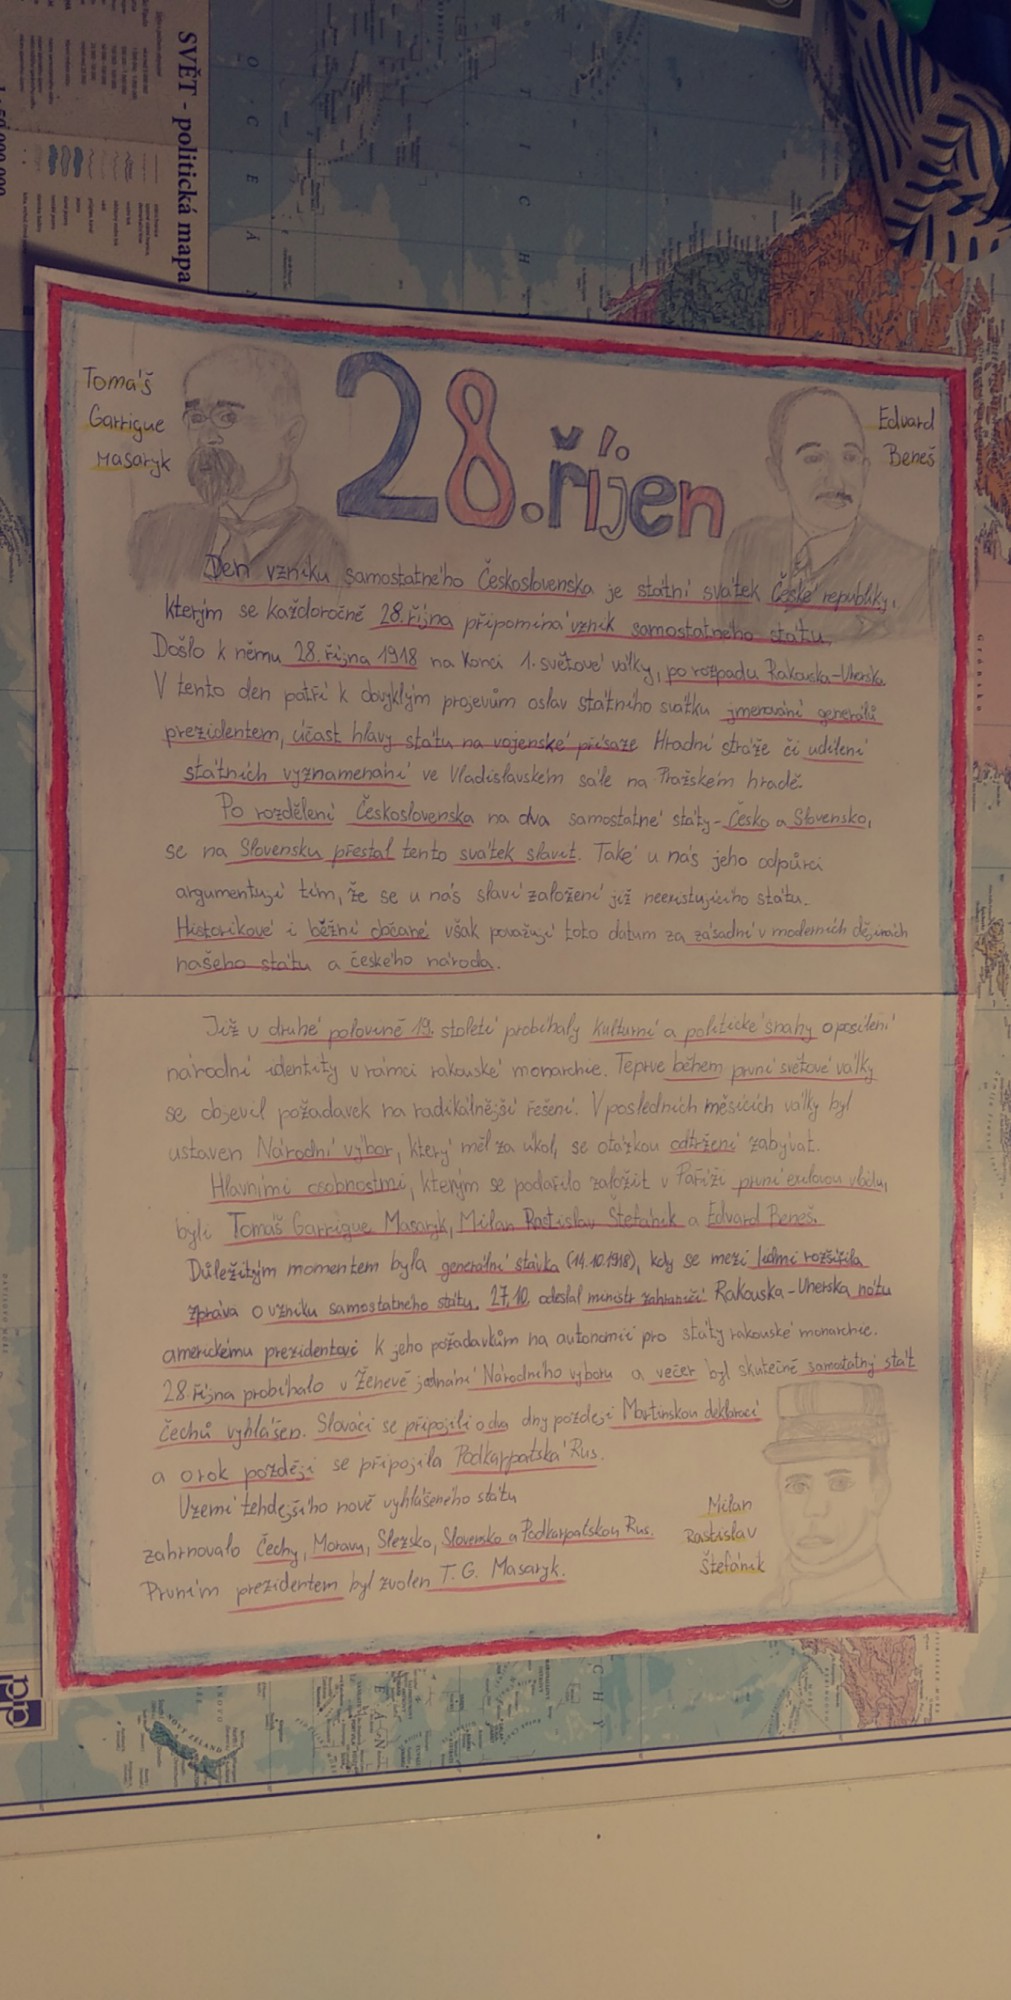 SVĚT - politická mapa
Tomáš
Garrigue
Masaryk
28. říjen
Edvard
Beneš
Den vzniku samostatného Československa je státní svátek České republiky,
kterým se každoročně 28. října připomíná vznik samostatného státu.
Došlo k němu 28. října 1918 na konci 1. světové války, po rozpadu Rakouska-Uherska.
V tento den patří k obvyklým projevům oslav státního svátku jmenování generálů
prezidentem, účast hlavy státu na vojenské přísaze Hradní stráže či udílení
státních vyznamenání ve Vladislavském sále na Pražském hradě.
Po rozdělení Československa na dva samostatné státy - Česko a Slovensko,
se na Slovensku přestal tento svátek slavit. Také u nás jeho odpůrci
argumentují tím, že se u nás slaví založení již neexistujícího státu.
Historikové i běžní občané však považují toto datum za zásadní v moderních dějinách
našeho státu a českého národa.
Již v druhé polovině 19. století probíhaly kulturní a politické snahy o posílení
národní identity v rámci rakouské monarchie. Teprve během první světové války
se objevil požadavek na radikálnější řešení. V posledních měsících války byl
ustaven Národní výbor, který měl za úkol, se otázkou odtržení zabývat.
Hlavními osobnostmi, kterým se podařilo založit v Paříži první exilovou vládu,
byli Tomáš Garrigue Masaryk, Milan Rastislav Štefánik a Edvard Beneš.
Důležitým momentem byla generální stávka (14.10.1918), kdy se mezi lidmi rozšířila
zpráva o vzniku samostatného státu. 27.10. odeslal ministr zahraničí Rakouska-Uherska nótu
americkému prezidentovi k jeho požadavkům na autonomii pro státy rakouské monarchie.
28. října probíhalo v Ženevě jednání Národního výboru a večer byl skutečně samostatný stát
Čechů vyhlášen. Slováci se připojili o dva dny později Martinskou deklarací
a o rok později se připojila Podkarpatská Rus.
Území tehdejšího nově vyhlášeného státu
zahrnovalo Čechy, Moravu, Slezsko, Slovensko a Podkarpatskou Rus.
Prvním prezidentem byl zvolen T. G. Masaryk.
Milan
Rastislav
Štefánik
NOVÝ ZÉLAND